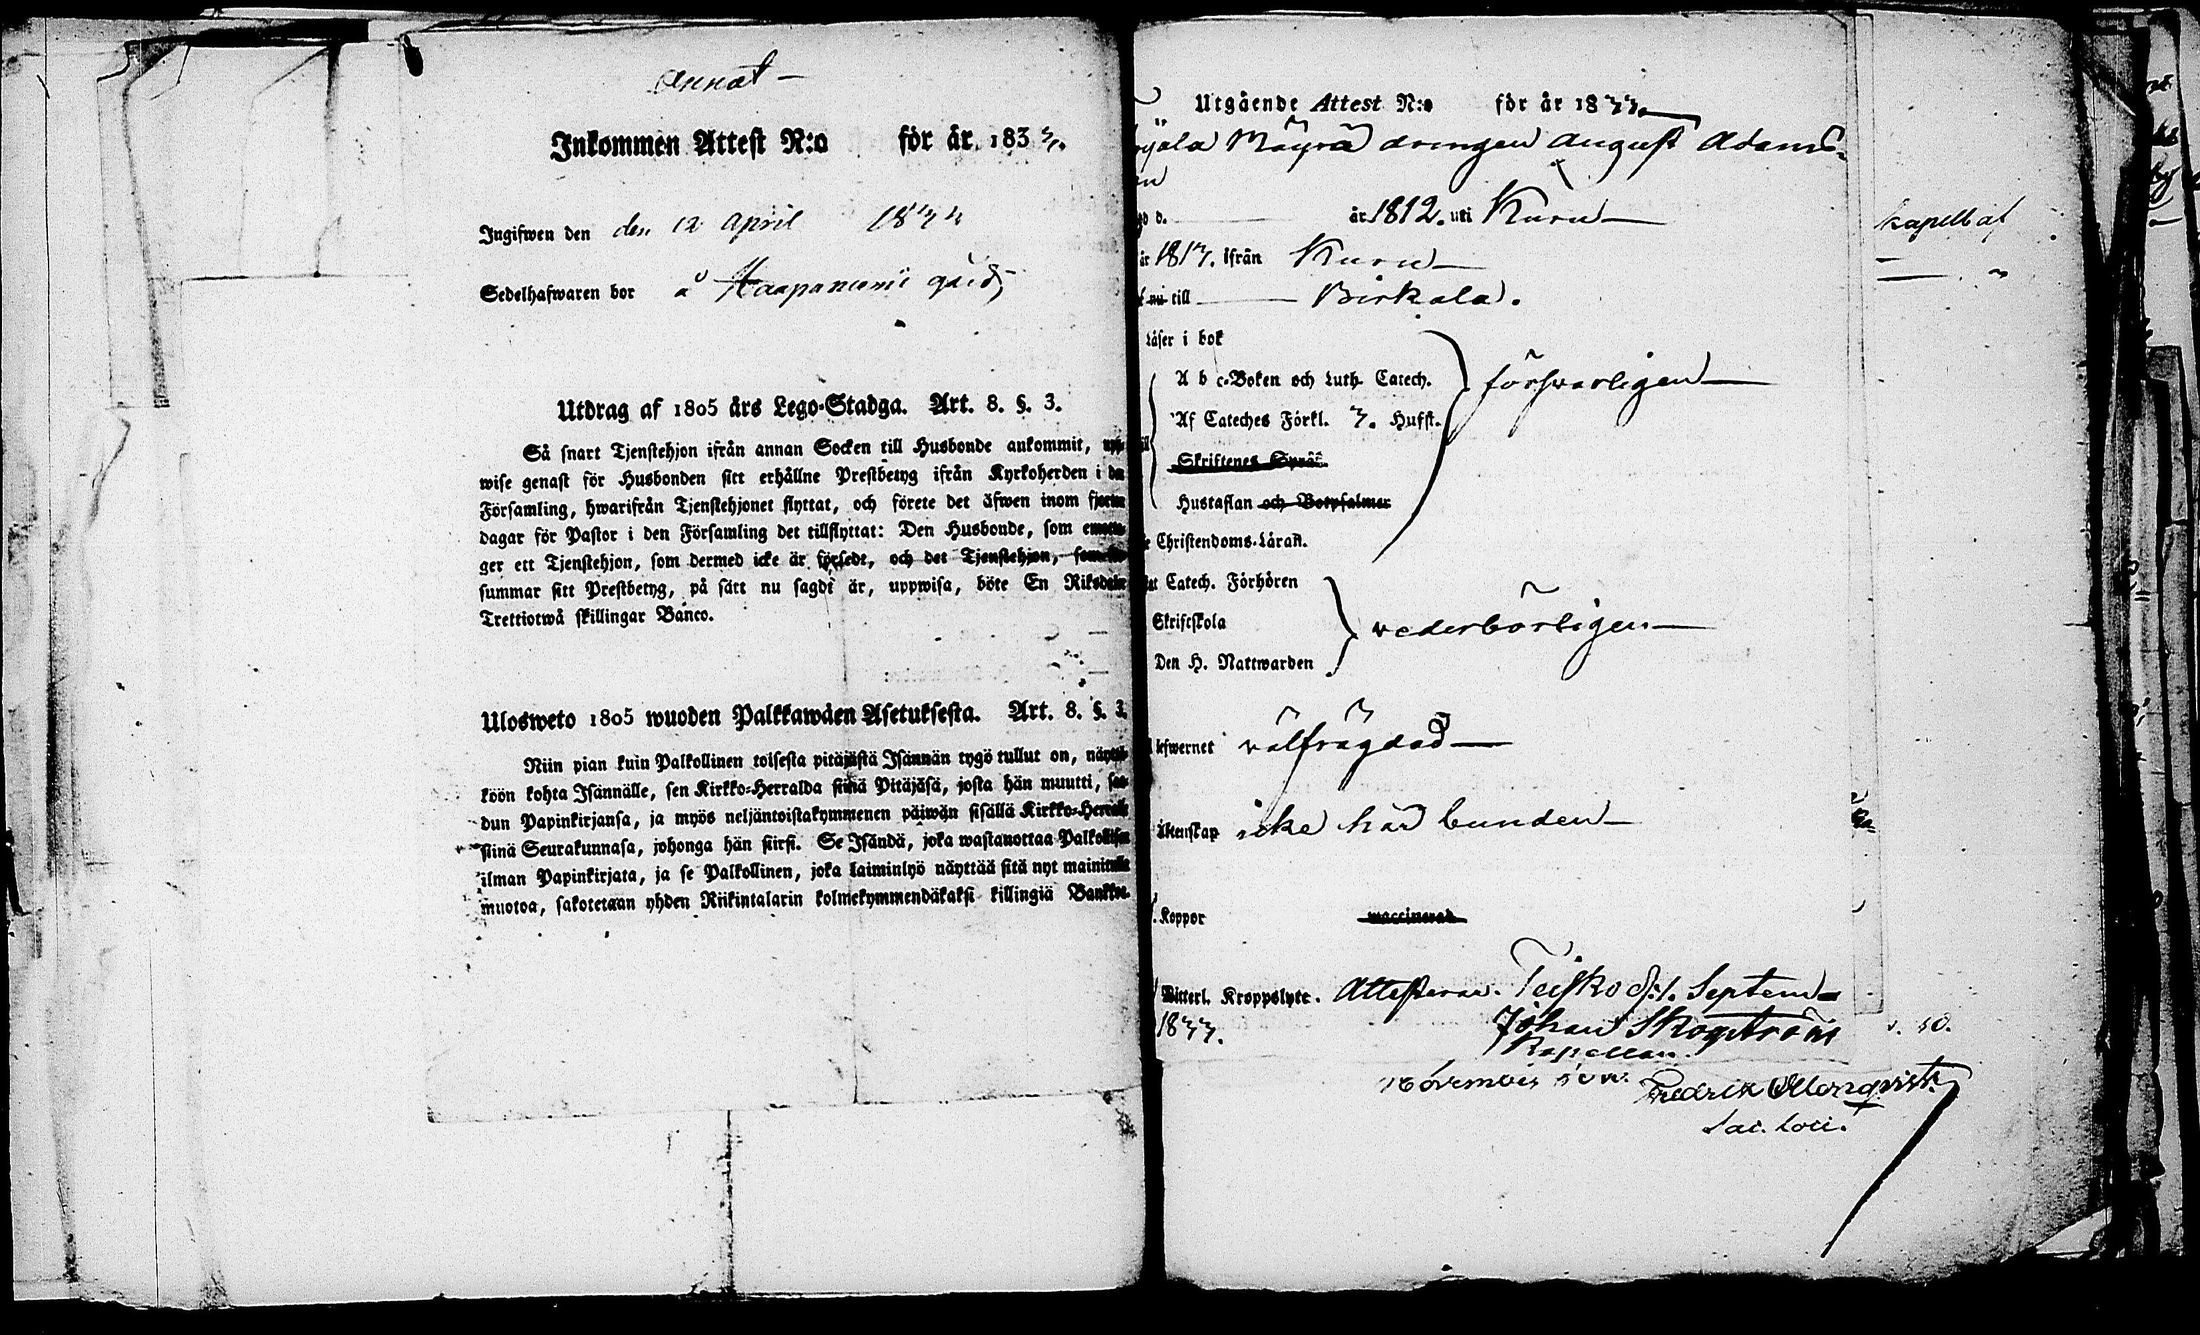 Annat —
Inkommen Attest N:o för år 1833.
Ingifwen den den 12 April 1834
Sedelhafwaren bor å Haapaniemi gård,
Utdrag af 1805 års Lego-Stadga. Art. 8. §. 3.
Så snart Tjenstehjon ifrån annan Socken till Husbonde ankommit, upp-
wise genast för Husbonden sitt erhållne Prestbetyg ifrån Kyrkoherden i den
Församling, hwarifrån Tjenstehjonet flyttat, och förete det äfwen inom fjorton
dagar för Pastor i den Församling det tillflyttat: Den Husbonde, som emotta-
ger ett Tjenstehjon, som dermed icke är försedt, och det Tjenstehjon, som för-
summar sitt Prestbetyg, på sätt nu sagdt är, uppwisa, böte En Riksdaler
Trettiotwå skillingar Banco.
Ulosweto 1805 wuoden Palkkawäen Asetuksesta. Art. 8. §. 3.
Niin pian kuin Palkollinen toisesta pitäjästä Isännän tygö tullut on, näyttä-
köön kohta Isännälle, sen Kirkko-Herralda siinä Pitäjäsä, josta hän muutti, saa-
dun Papinkirjansa, ja myös neljäntoistakymmenen päiwän sisällä Kirkko-Herralle
siinä Seurakunnasa, johonga hän siirsi. Se Isändä, joka wastanottaa Palkollisen
ilman Papinkirjata, ja se Palkollinen, joka laiminlyö näyttää sitä nyt mainitulla
muotoa, sakotetaan yhden Riikintalarin kolmekymmendäkaksi killingiä Bankkoa.
Utgående Attest N:o för år 1833.
Mäyrä drengen August Adams-
år 1812. uti Kuru —
år 1817. ifrån Kuru —
nu till — Birkala.
Läser i bok
A b c-Boken och Luth. Catech. försvarligen —
Af Cateches Förkl. 3. Hufst.
Skriftenes Språk.
Hustaflan och Botpsalmer
Christendoms-Läran.
Catech. Förhören
Skriftskola vederbörligen —
Den H. Nattwarden
lefwernet välfrägdad —
äktenskap icke här bunden —
Koppor waccinerad
Witterl. Kroppslyte. Attesterar. Teisko d. 1. Septem-
1833. Johan Skogström
Kapellan.
Fredrik
Sac. Loci.
kapell af